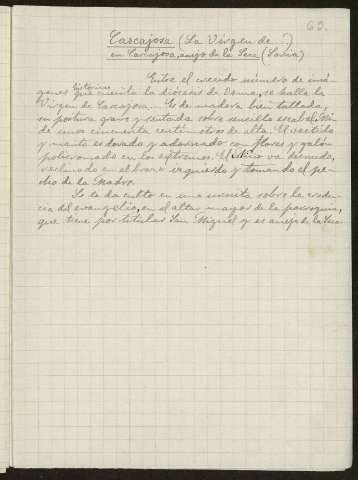 69.
Carcajosa (La Virgen de ..)
en Carcajosa, anejo de la Seca (Soria)
Entre el crecido número de imá-
históricas
genes que cuenta la diócesis de Osma, se halla la
Virgen de Carcajosa... Es de madera bien tallada,
su postura grave y sentada sobre sencillo escabel. Mi-
de unos cincuenta centímetros de alta. El vestido
y manto es dorado y adornado con flores y galón
policromado en los extremos. El niño va desnudo,
reclinado en el brazo izquierdo y tomando el pe-
cho de la Madre.
Se le da culto en una sobre la creden-
cia del evangelio, en el altar mayor de la parroquia,
que tiene por titular San Miguel y es aneja de la Seca